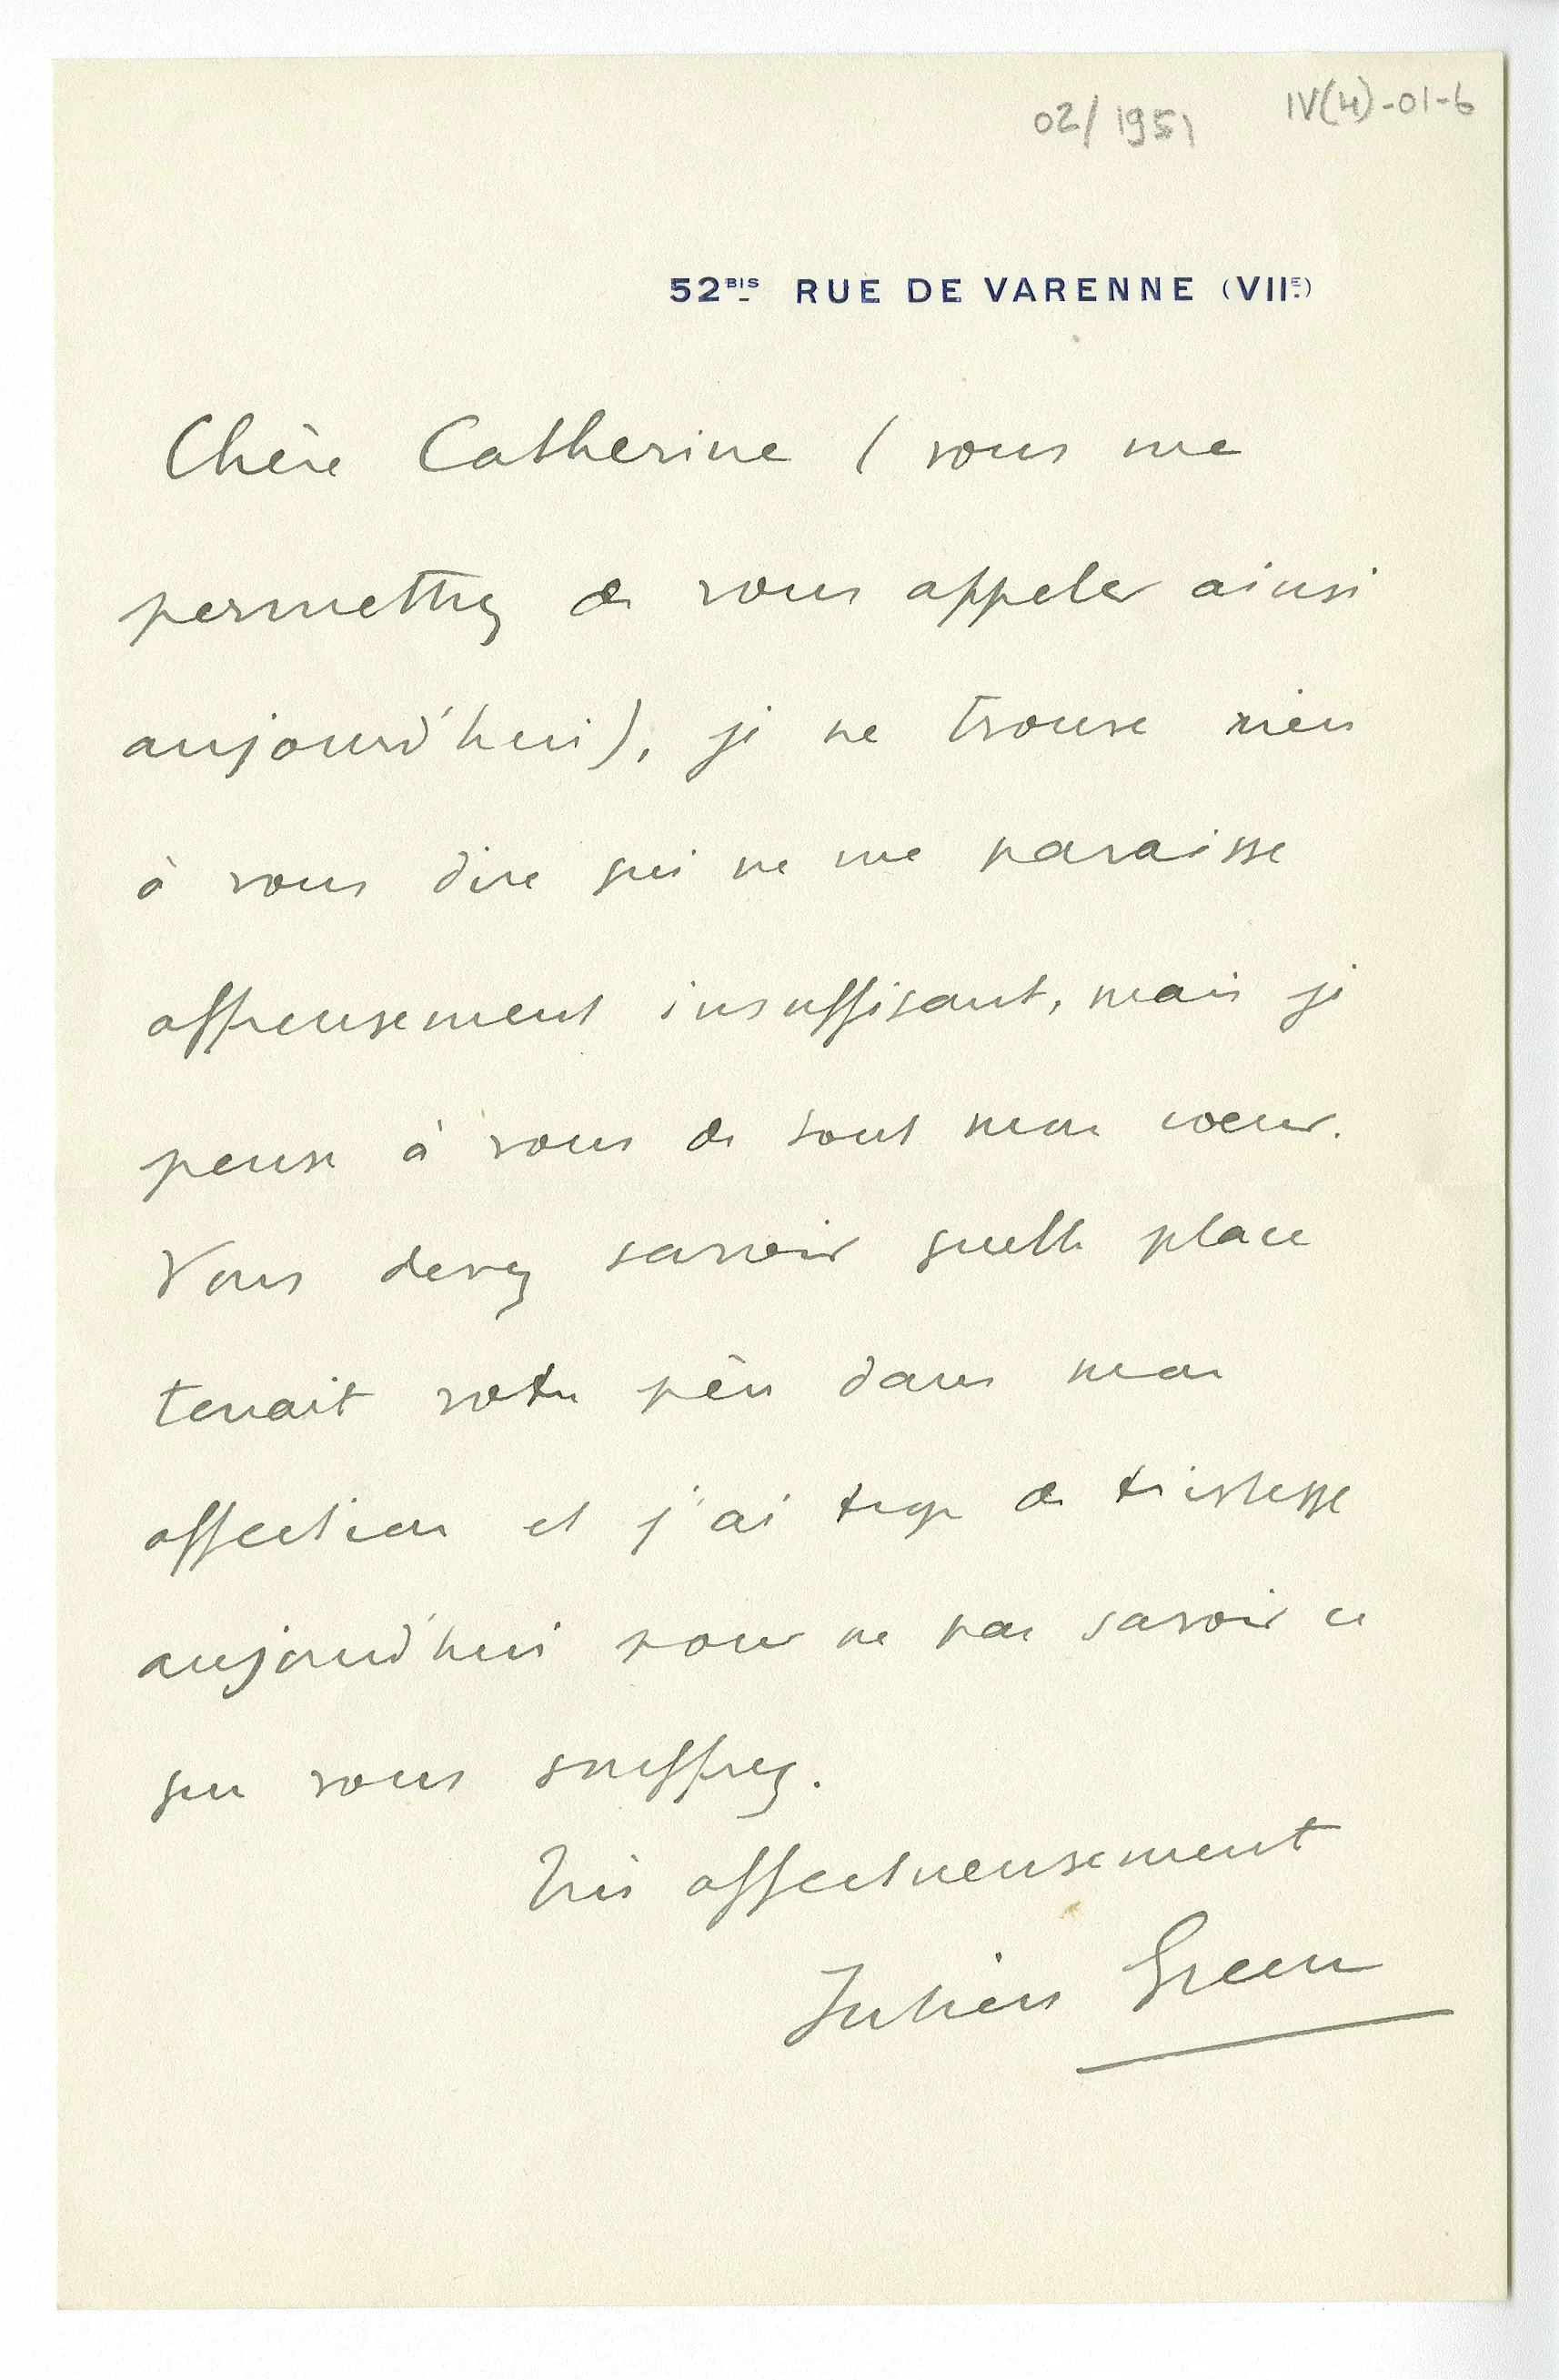 02/1951 IV(4)-01-6
52BIS RUE DE VARENNE (VIIE)
Chère Catherine (vous me
permettrez de vous appeler ainsi
aujourd'hui), je ne trouve rien
à vous dire qui ne me paraisse
affreusement insuffisant, mais je
pense à vous de tout mon coeur.
Vous devez savoir quelle place
tenait votre père dans mon
affection et j'ai trop de tristesse
aujourd'hui pour ne pas savoir ce
que vous souffrez.
Très affectueusement
Julien Green